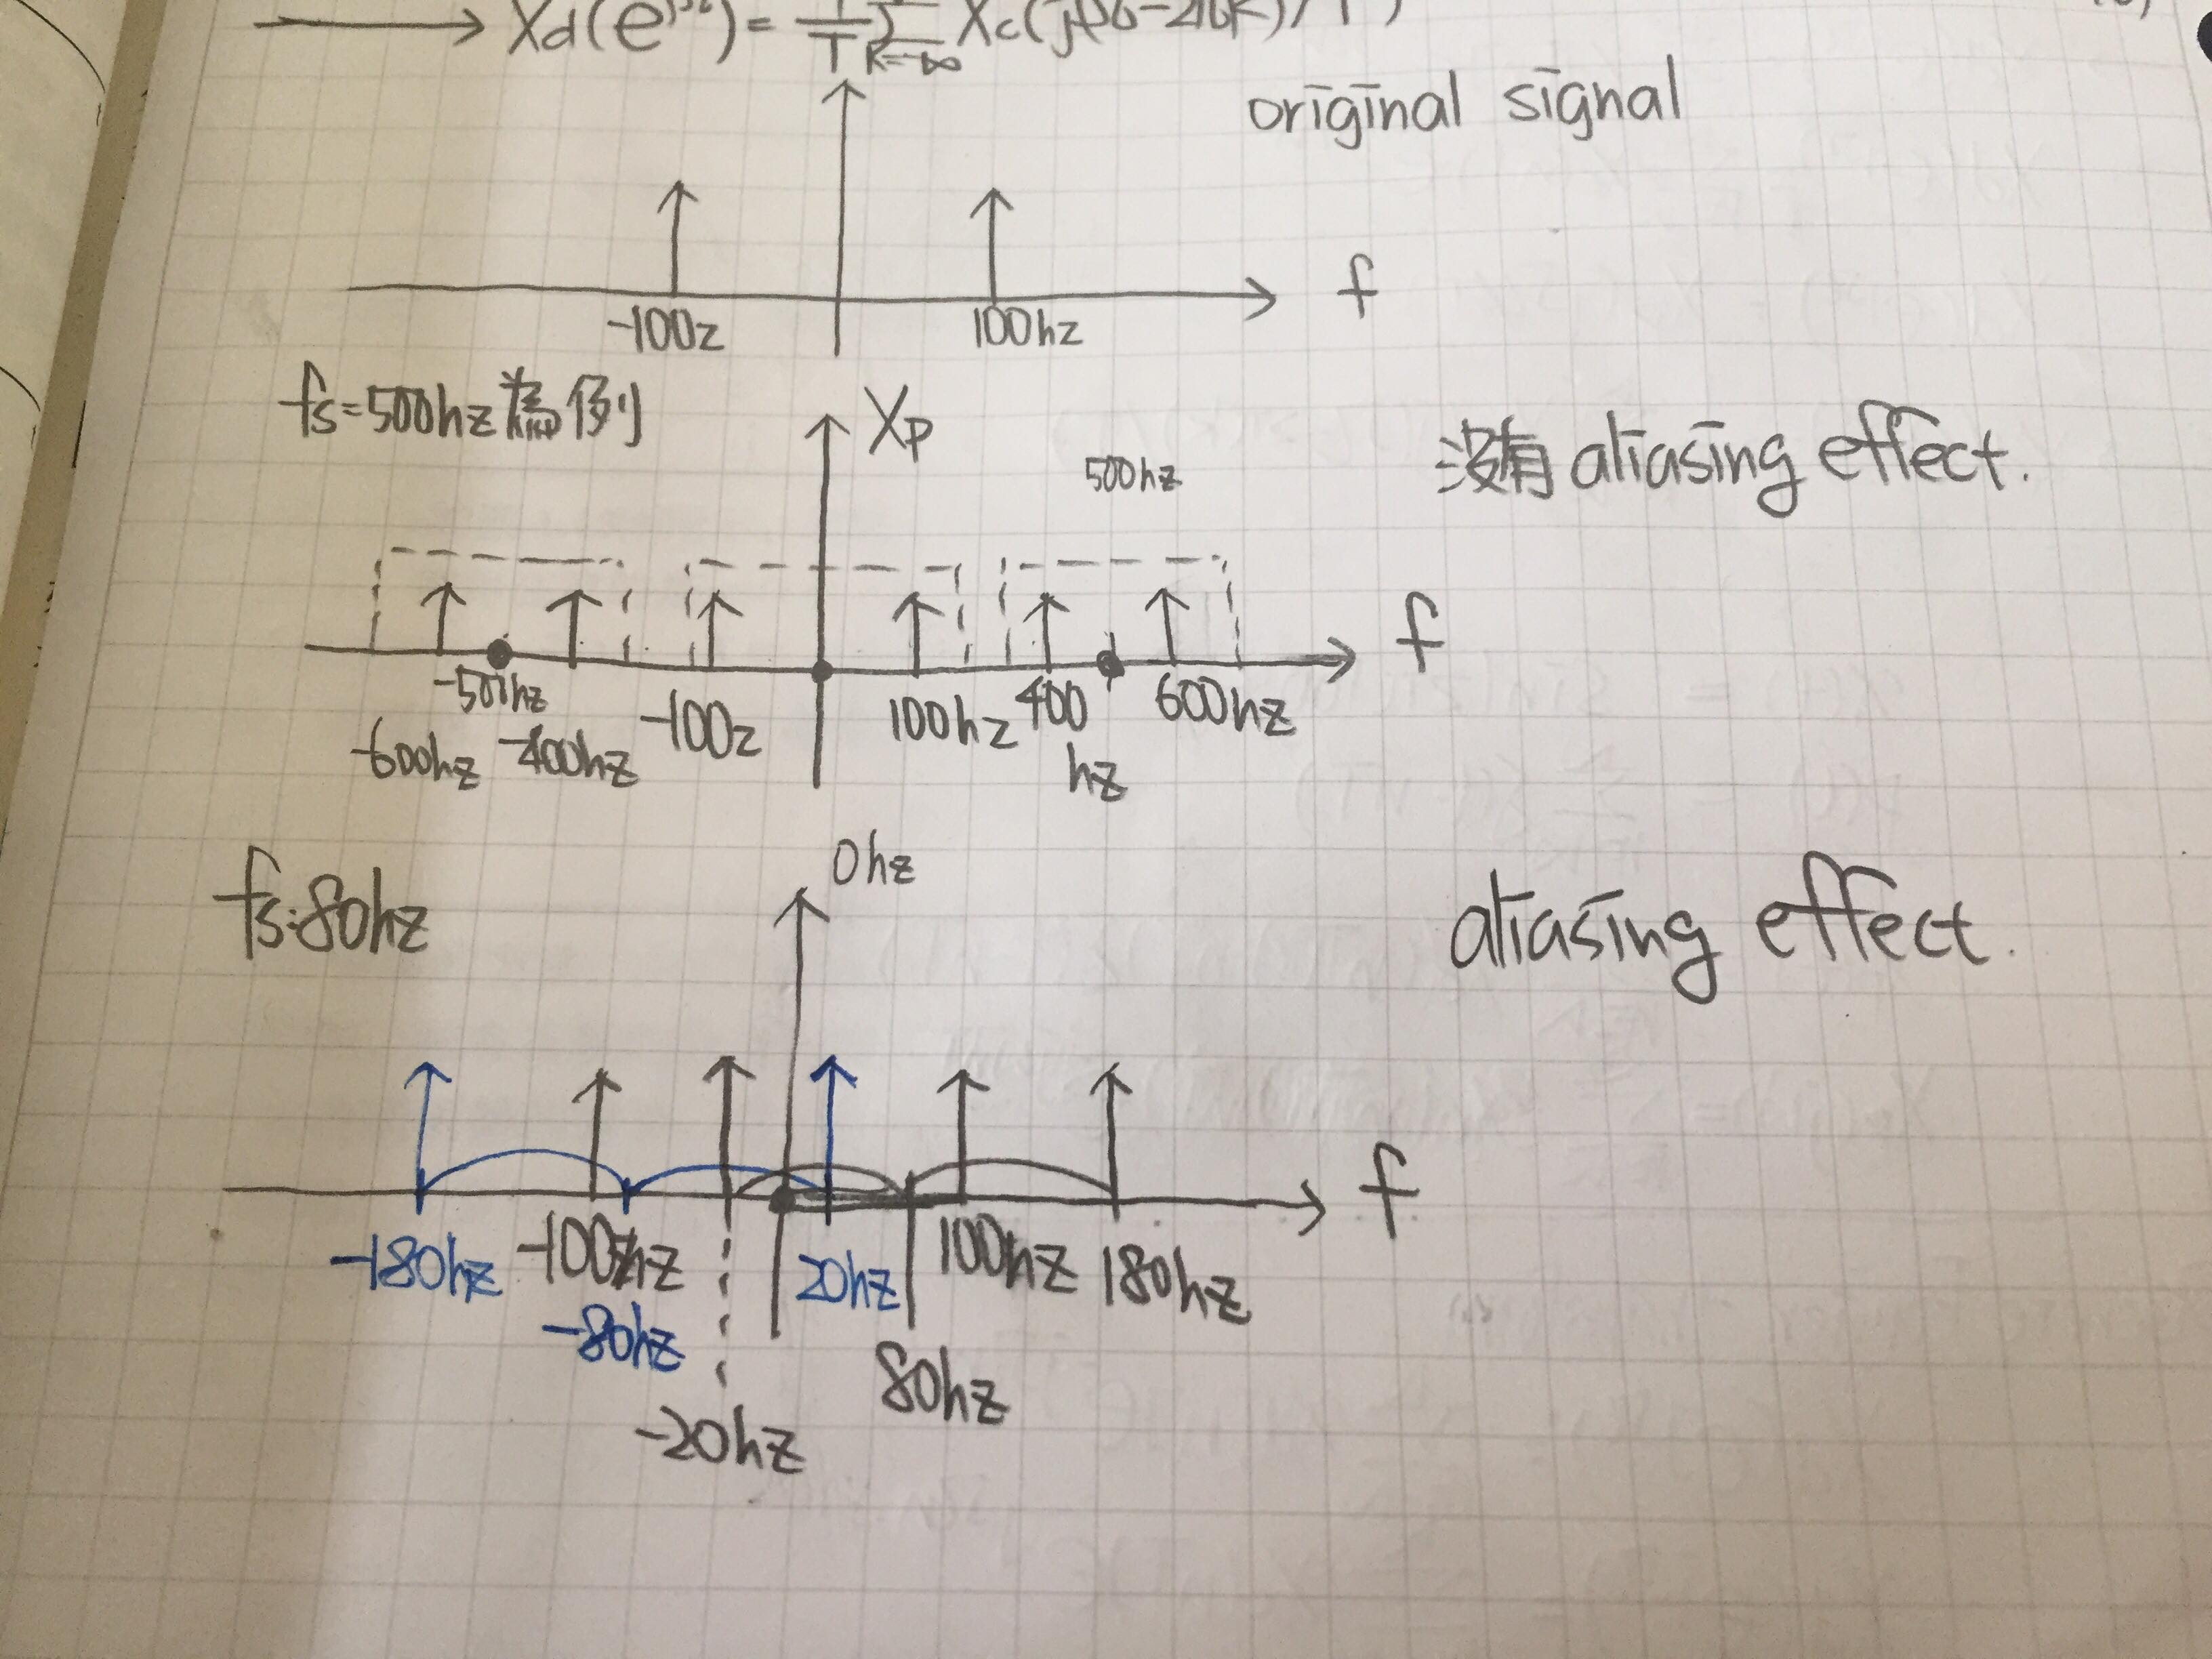 Xd(e^jΩ) = 1/T Σ k=-∞ Xc(j(Ω-2πk)/T)
original signal
f
-100z 100hz
fs=500hz 為例 Xp
500hz 没有 aliasing effect.
f
-500hz
-600hz -400hz -100z 100hz 400 hz 600hz
0hz
fs:80hz aliasing effect.
f
-180hz -100hz 20hz 100hz 180hz
-80hz 80hz
-20hz